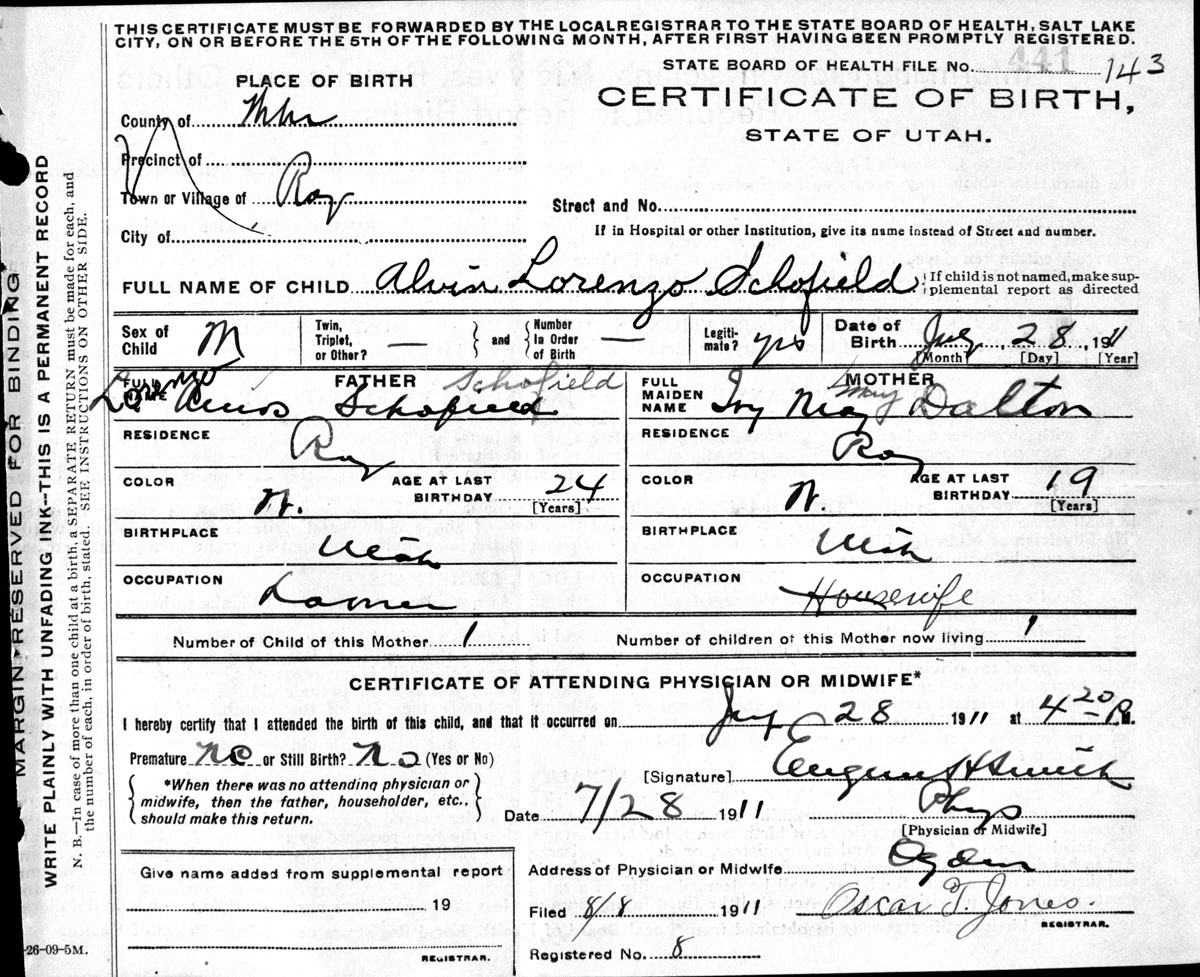 THIS CERTIFICATE MUST BE FORWARDED BY THE LOCAL REGISTRAR TO THE STATE BOARD OF HEALTH, SALT LAKE
CITY, ON OR BEFORE THE 5TH OF THE FOLLOWING MONTH, AFTER FIRST HAVING BEEN PROMPTLY REGISTERED.
STATE BOARD OF HEALTH FILE No. 441 143
PLACE OF BIRTH
CERTIFICATE OF BIRTH,
STATE OF UTAH.
County of
Precinct of
Town or Village of Roy
Street and No.
City of
If in Hospital or other Institution, give its name instead of Street and number.
FULL NAME OF CHILD Alvin Lorenzo Schofield {If child is not named, make sup-
plemental report as directed
Sex of Child M
Twin, Triplet, or Other? — } and { Number In Order of Birth —
Legiti- mate? yes
Date of Birth July 28, 1911
[Month] [Day] [Year]
FATHER Schofield
Lorenzo Amos Schofield
MOTHER
May
FULL MAIDEN NAME Ivy May Dalton
RESIDENCE Roy
RESIDENCE Roy
COLOR W. AGE AT LAST BIRTHDAY 24 [Years]
COLOR W. AGE AT LAST BIRTHDAY 19 [Years]
BIRTHPLACE Utah
BIRTHPLACE Utah
OCCUPATION
OCCUPATION Housewife
Number of Child of this Mother 1
Number of children of this Mother now living 1
CERTIFICATE OF ATTENDING PHYSICIAN OR MIDWIFE*
I hereby certify that I attended the birth of this child, and that it occurred on July 28 1911 at 4 20 P.M.
Premature No or Still Birth? No (Yes or No)
{*When there was no attending physician or
midwife, then the father, householder, etc.,
should make this return.}
[Signature] Eugene H Smith
Date 7/28 1911 Phys
[Physician or Midwife]
Address of Physician or Midwife Ogden
Give name added from supplemental report
19
REGISTRAR.
Filed 8/8 1911 Oscar T. Jones
REGISTRAR.
Registered No. 8
-26-09-5M.
MARGIN RESERVED FOR BINDING
WRITE PLAINLY WITH UNFADING INK--THIS IS A PERMANENT RECORD
N. B.—In case of more than one child at a birth, a SEPARATE RETURN must be made for each, and
the number of each, in order of birth, stated. SEE INSTRUCTIONS ON OTHER SIDE.